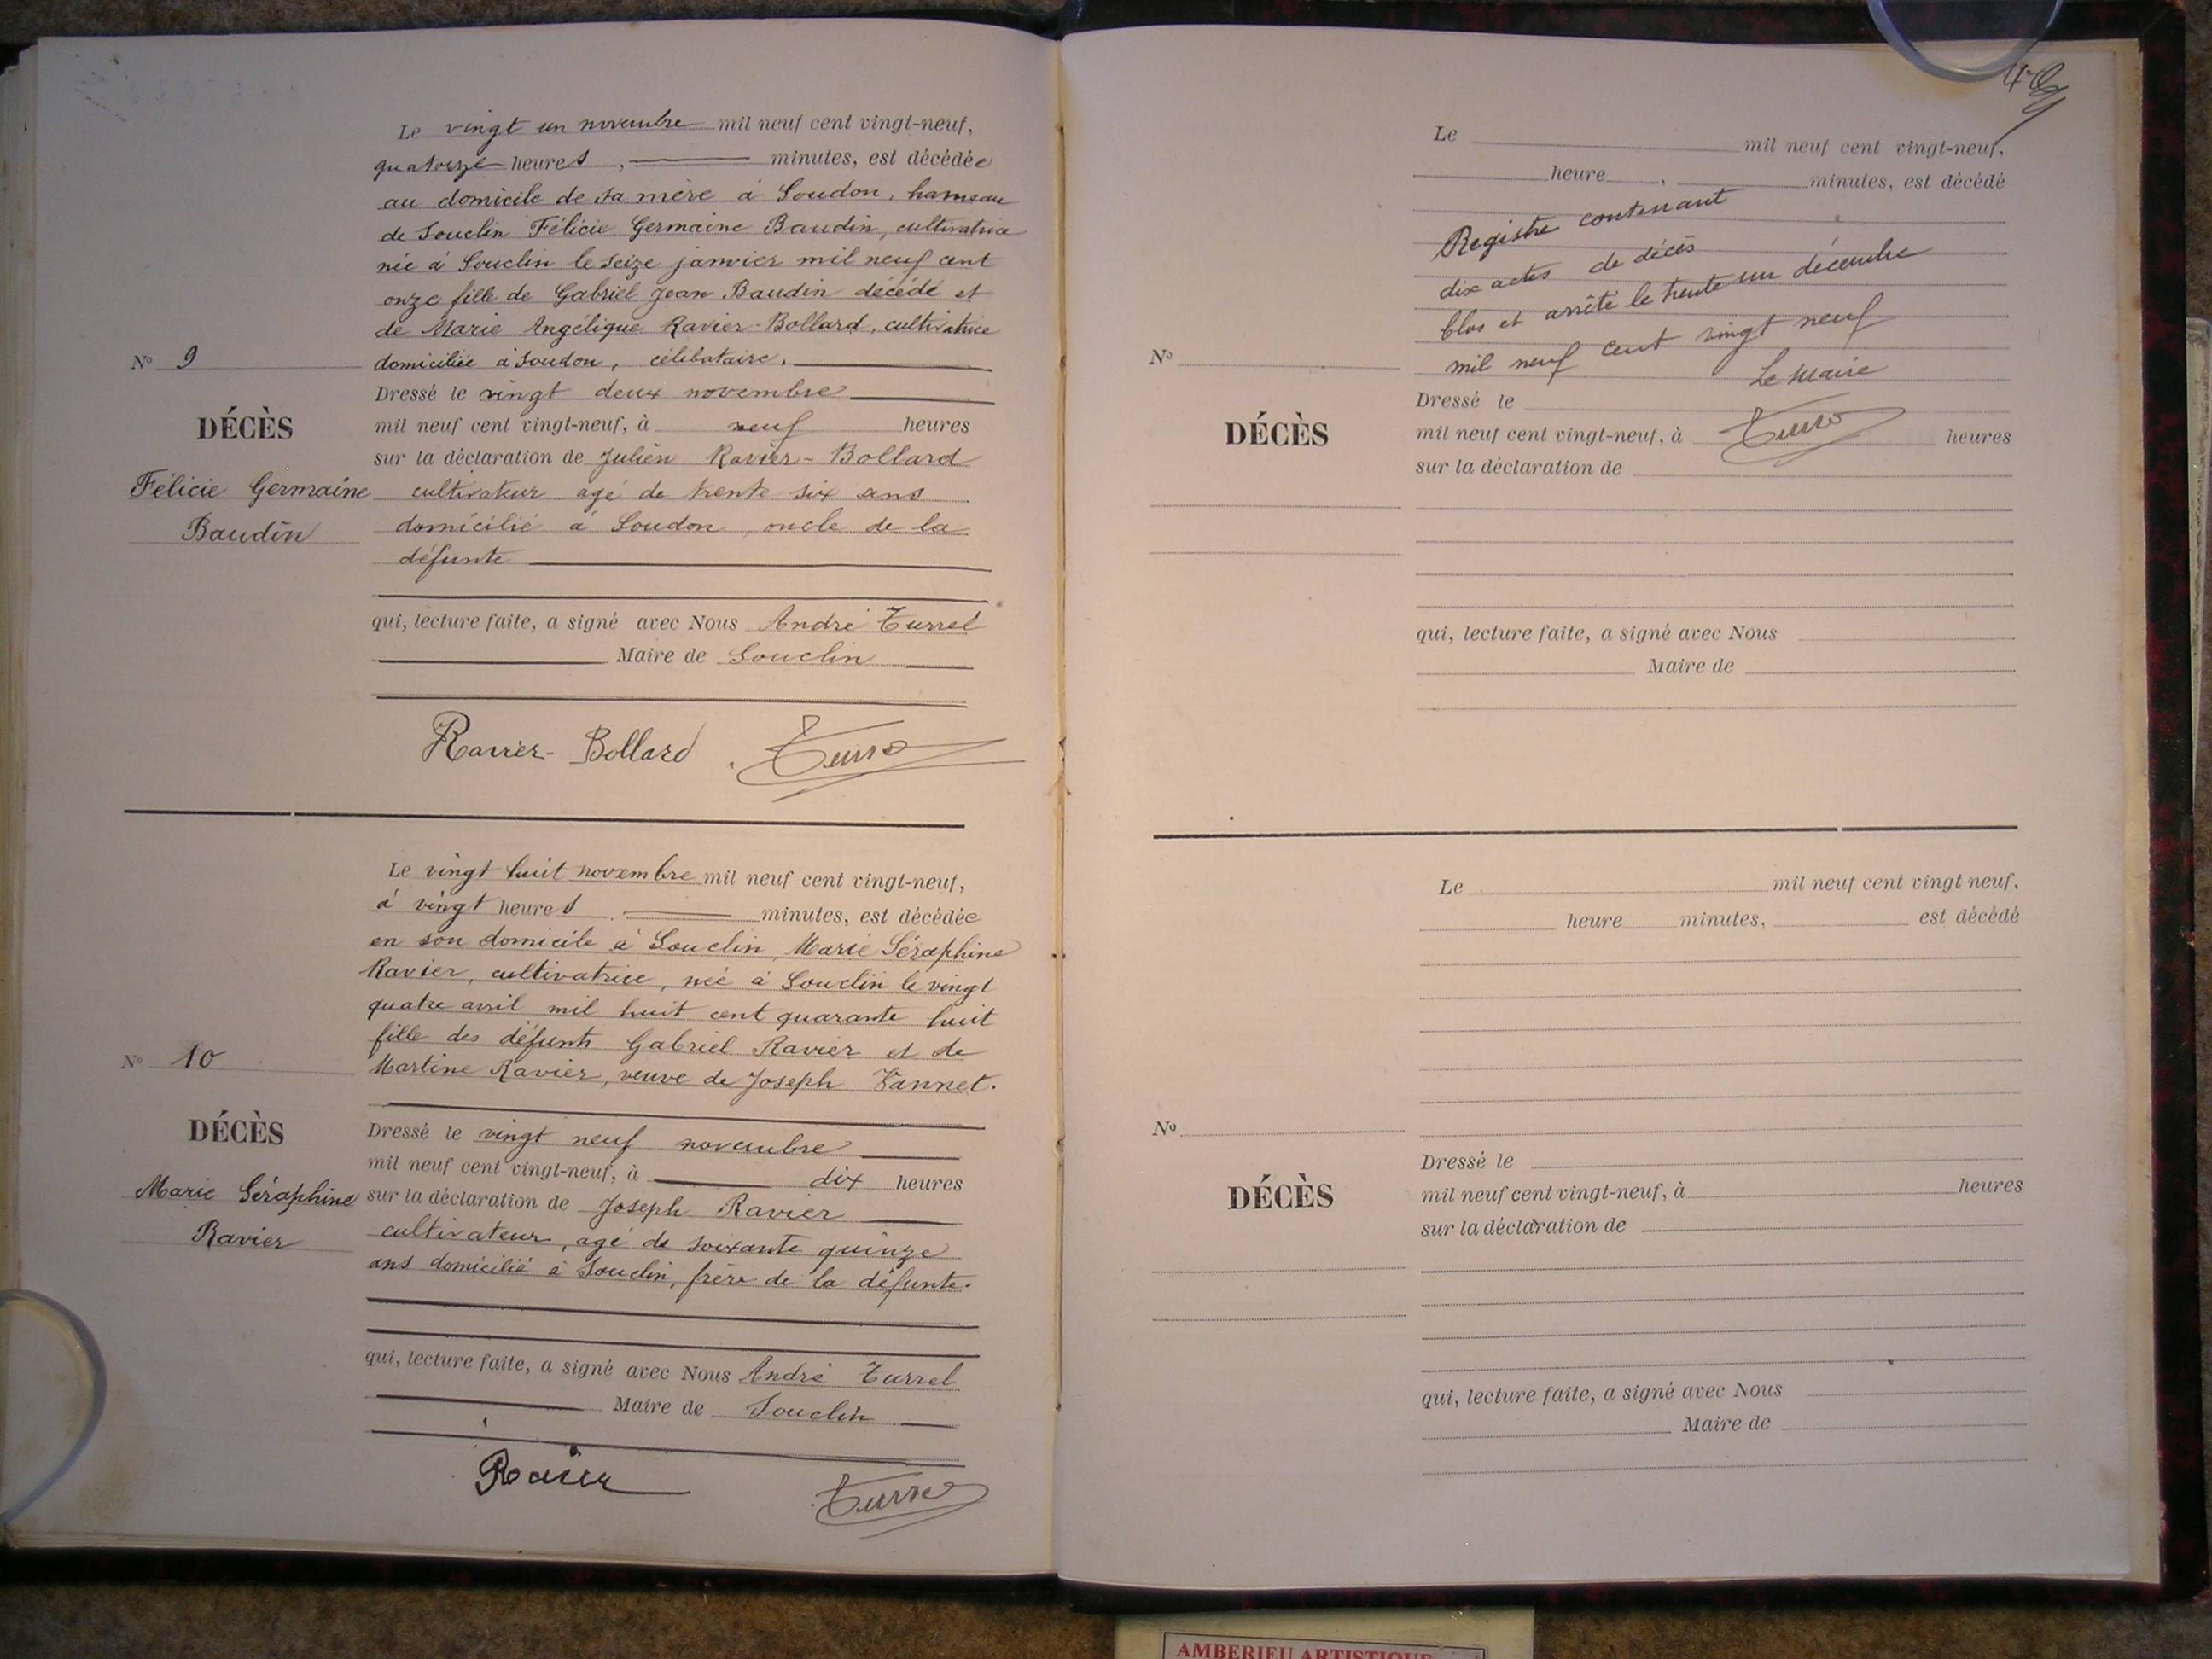 Le vingt un novembre mil neuf cent vingt-neuf,
quatorze heures, minutes, est décédée
au domicile de sa mère à Soudon, hameau
de Souclin Félicie Germaine Baudin, cultivatrice
née à Souclin le seize janvier mil neuf cent
onze fille de Gabriel Jean Baudin décédé et
de Marie Angélique Ravier-Bollard, cultivatrice
domiciliée à Soudon, célibataire.
Nº 9
Dressé le vingt deux novembre
mil neuf cent vingt-neuf, à neuf heures
DÉCÈS
sur la déclaration de Julien Ravier-Bollard
Félicie Germaine
cultivateur agé de trente six ans
Baudin
domicilié à Soudon, oncle de la
défunte
qui, lecture faite, a signé avec Nous André Turrel
Maire de Souclin
Ravier-Bollard
Le vingt huit novembre mil neuf cent vingt-neuf,
à vingt heures minutes, est décédée
en son domicile à Souclin, Marie Séraphine
Ravier, cultivatrice, née à Souclin le vingt
quatre avril mil huit cent quarante huit
fille des défunts Gabriel Ravier et de
Martine Ravier, veuve de Joseph Vannet.
Nº 10
DÉCÈS
Dressé le vingt neuf novembre
mil neuf cent vingt-neuf, à dix heures
Marie Séraphine
Ravier
sur la déclaration de Joseph Ravier
cultivateur, agé de soixante quinze
ans domicilié à Souclin, frère de la défunte.
qui, lecture faite, a signé avec Nous André Turrel
Maire de Souclin
Ravier
Le mil neuf cent vingt-neuf,
heure, minutes, est décédé
Registre contenant
dix actes de décès
Clos et arrêté le trente un décembre
mil neuf cent vingt neuf
Le Maire
Nº
Dressé le
DÉCÈS
mil neuf cent vingt-neuf, à heures
sur la déclaration de
qui, lecture faite, a signé avec Nous
Maire de
Le mil neuf cent vingt neuf,
heure minutes, est décédé
Nº
Dressé le
DÉCÈS
mil neuf cent vingt-neuf, à heures
sur la déclaration de
qui, lecture faite, a signé avec Nous
Maire de
AMBERIEU ARTISTIQUE